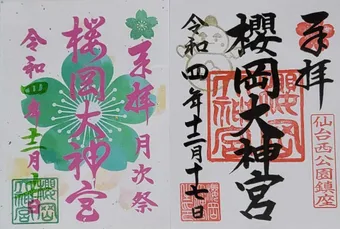 奉拝 月次祭
桜岡大神宮
令和四年十二月十七日
奉拝
仙台西公園鎮座
櫻岡大神宮
令和四年十二月十七日